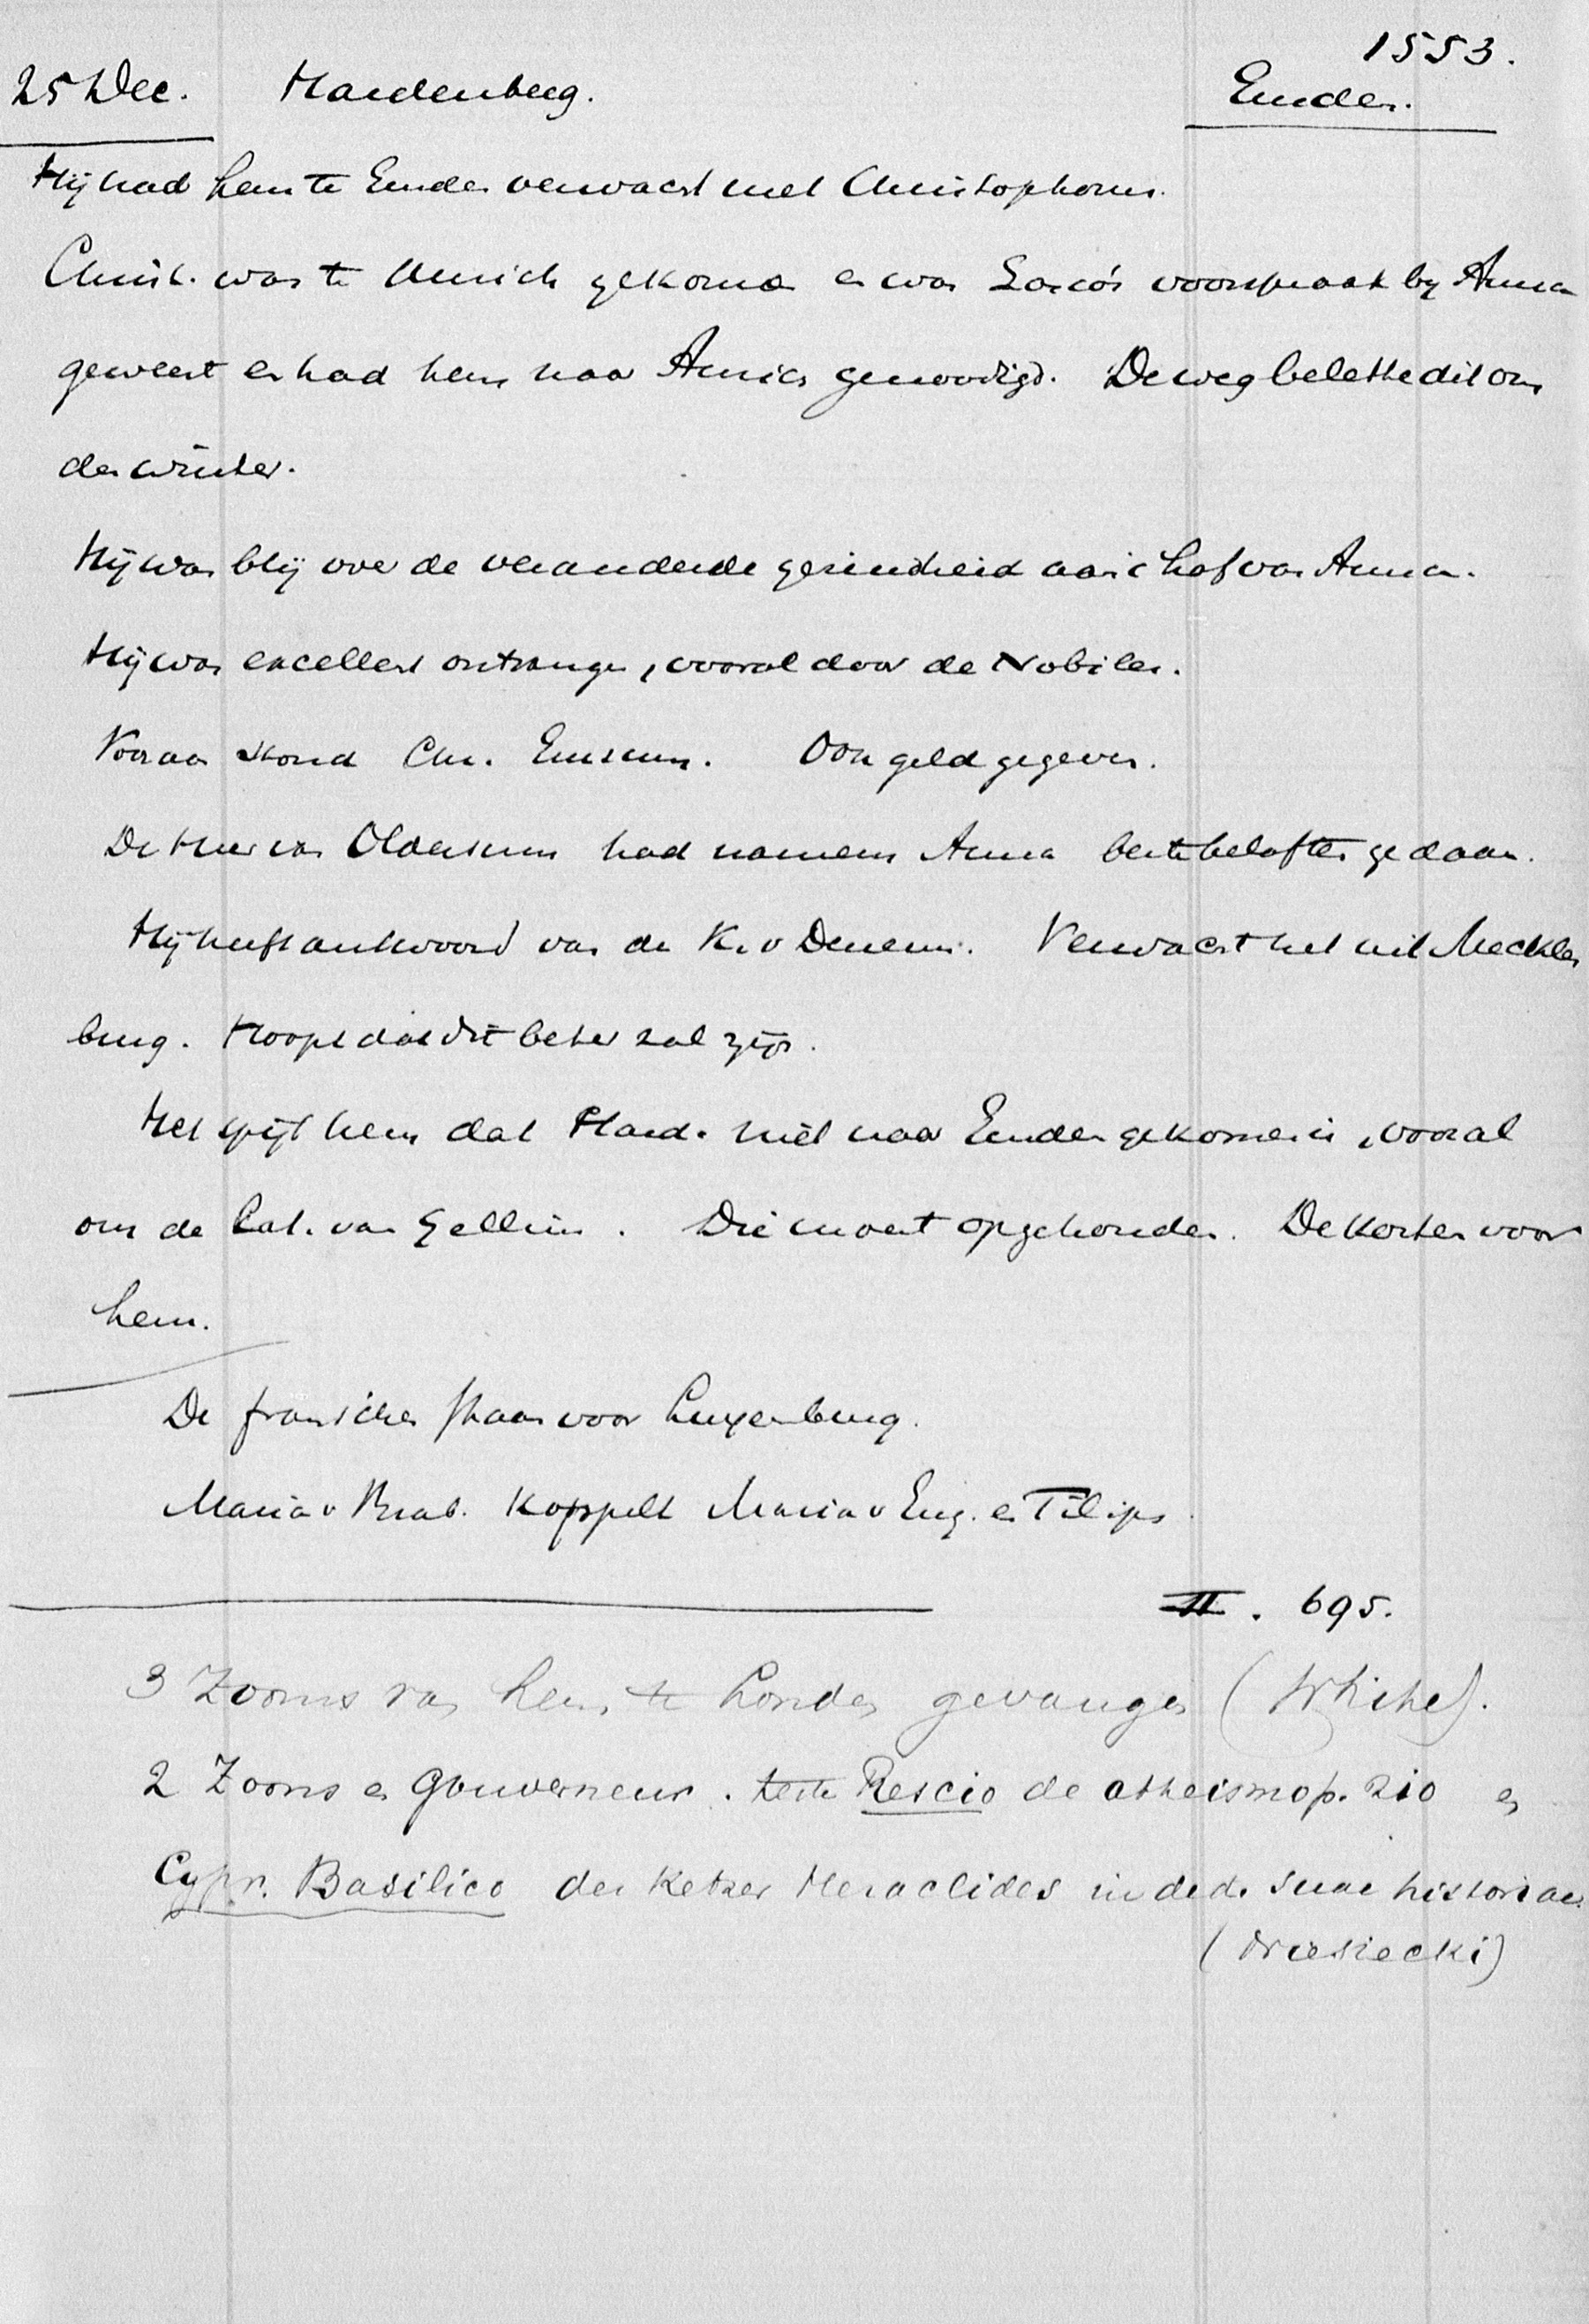 1553.
25 Dec. Hardenberg. Emden.
Hij had hem te Emden verwacht met Christophorus.
Christ. was te Aurich gekomen en was Lasco's voorspraak bij Anna
geweest en had hem naar Aurich genoodigd. De weg belette dit om
den winter.
Hij was blij over de veranderde gezindheid aan 't hof van Anna.
Hij was excellent ontvangen, vooral door de Nobiles.
Vooraan stond Chr. Ensum. Ook geld gegeven.
De Heer van Oldersum had namens Anna beste beloften gedaan.
Hij heeft antwoord van den K. v Denem. Verwacht het uit Mecklen
burg. Hoopt dat dit beter zal zijn.
Het spijt hem dat Hard. niet naar Emden gekomen is, vooral
om de Cat. van Gellius. Die moest opgehouden. De kosten voor
hem.
De franschen staan voor Luxenburg.
Maria v Brab. koppelt Maria v Eng. en Filips.
II. 695.
3 Zoons van hem te Londen gevangen
2 Zoons en Gouverneur. teste Rescio de atheismo p. 210 en
Cypr. Basilico den Ketzer Heraclides in ded. suae historiae